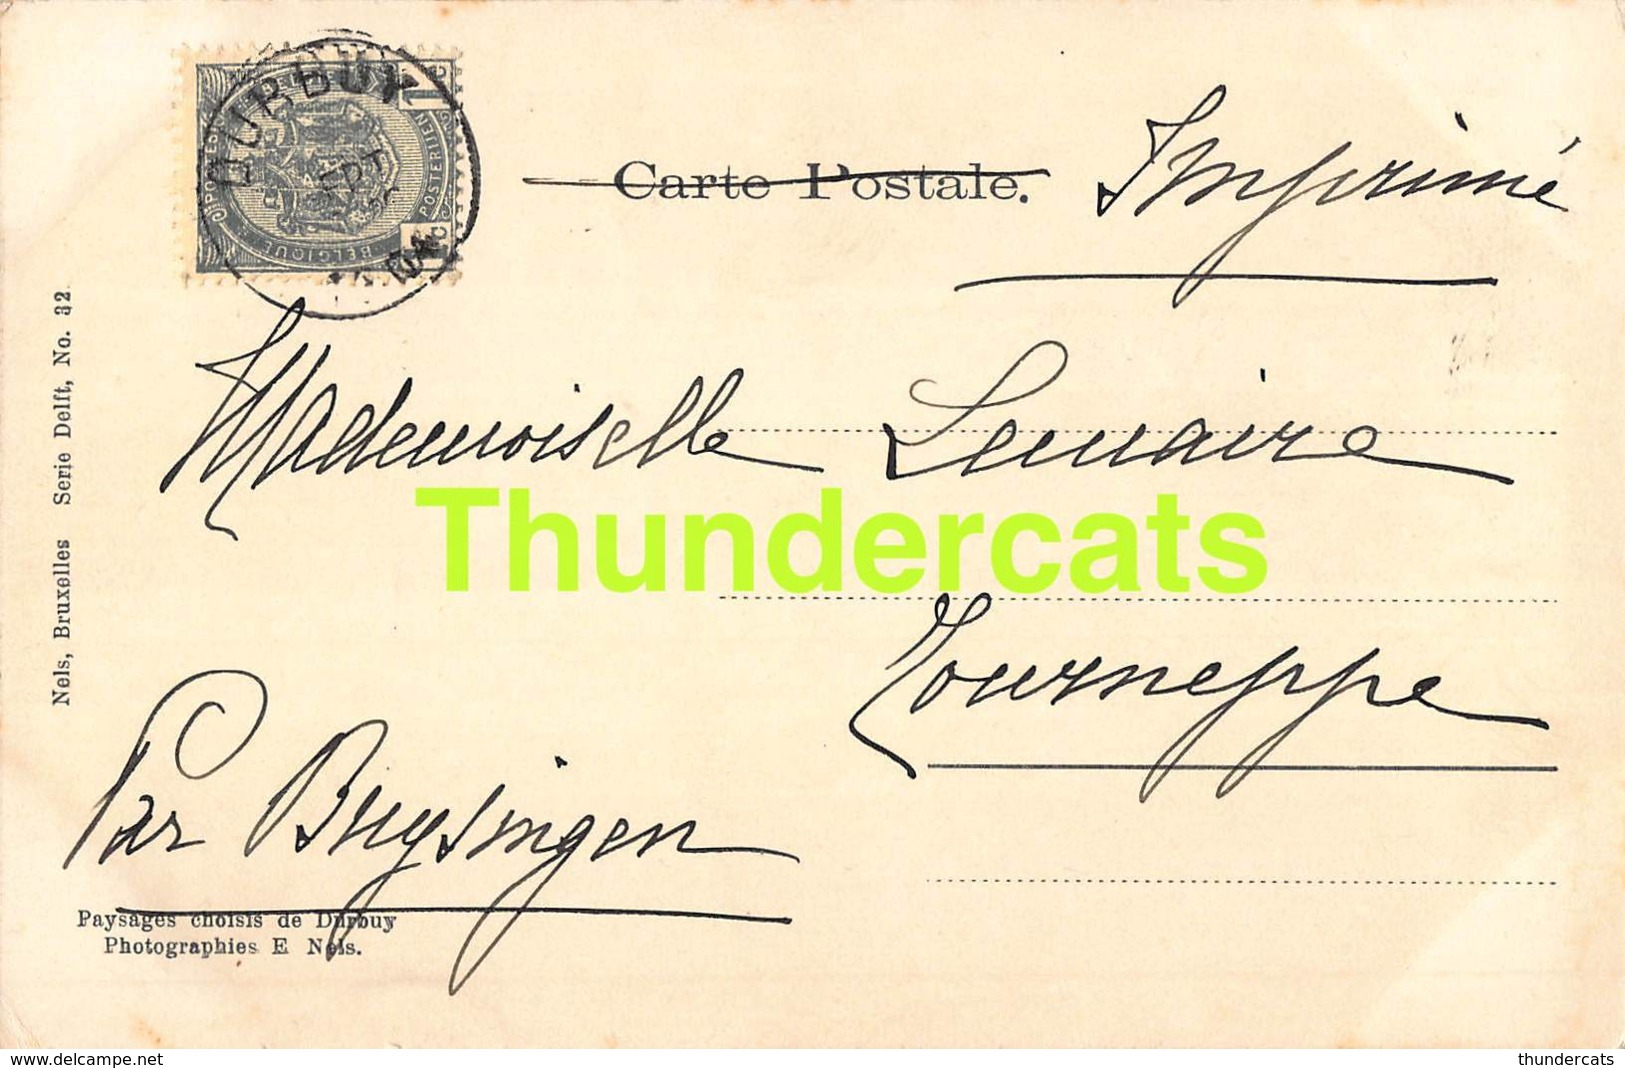 DURBUY
SEPT
04
BELGIQUE
POSTERIJEN
1
Carte Postale.
Imprimé
Mademoiselle Lemaire
Thundercats
Tourneppe
Par Buysingen
Nels, Bruxelles Serie Delft, No. 32
Paysages choisis de Durbuy
Photographies E Nels.
www.delcampe.net
thundercats